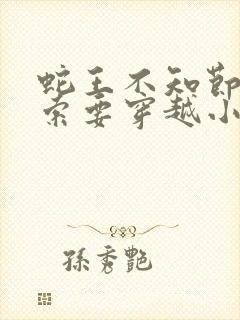 蛇王不知節
索要穿越小
孫秀艷